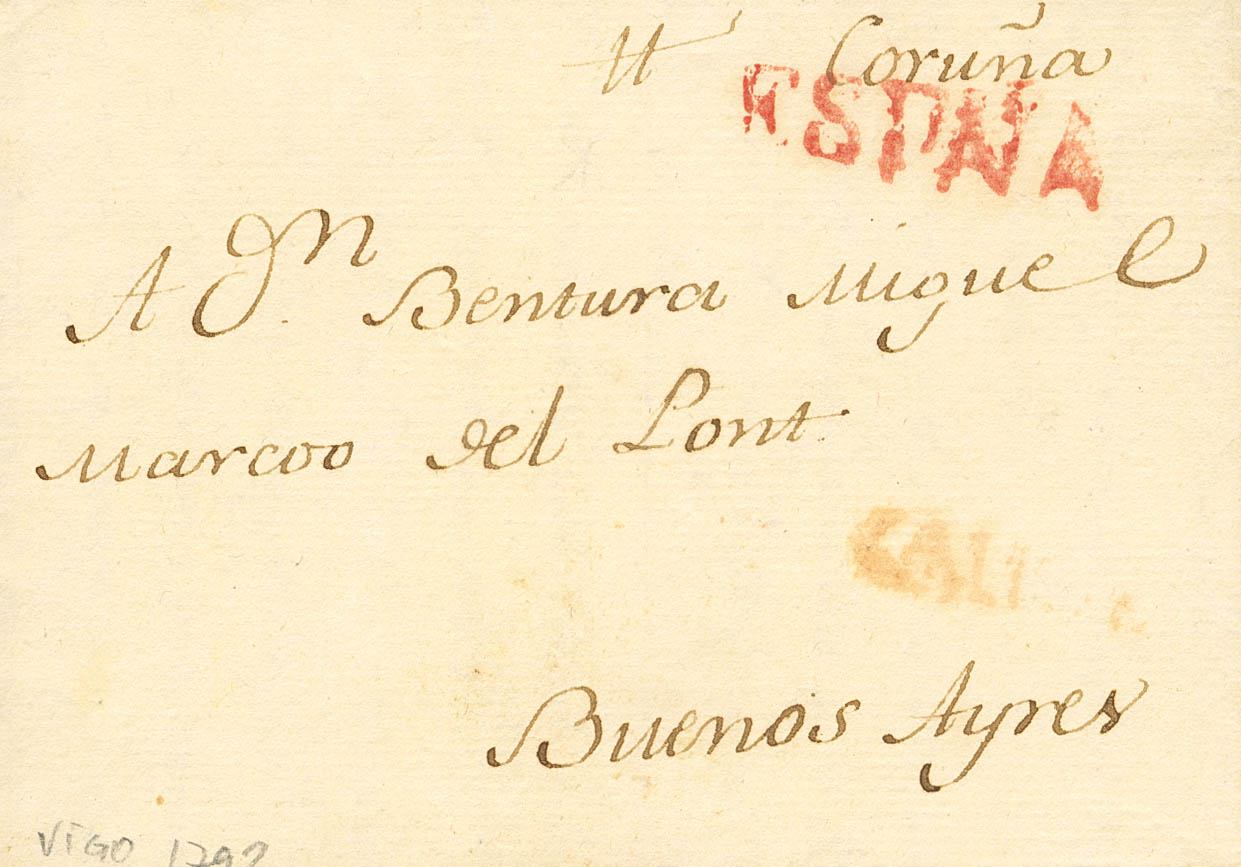 Coruña
ESPNA
A Dn. Bentura Miguel
Marcoo del Pont
Buenos Ayres
VIGO 1792